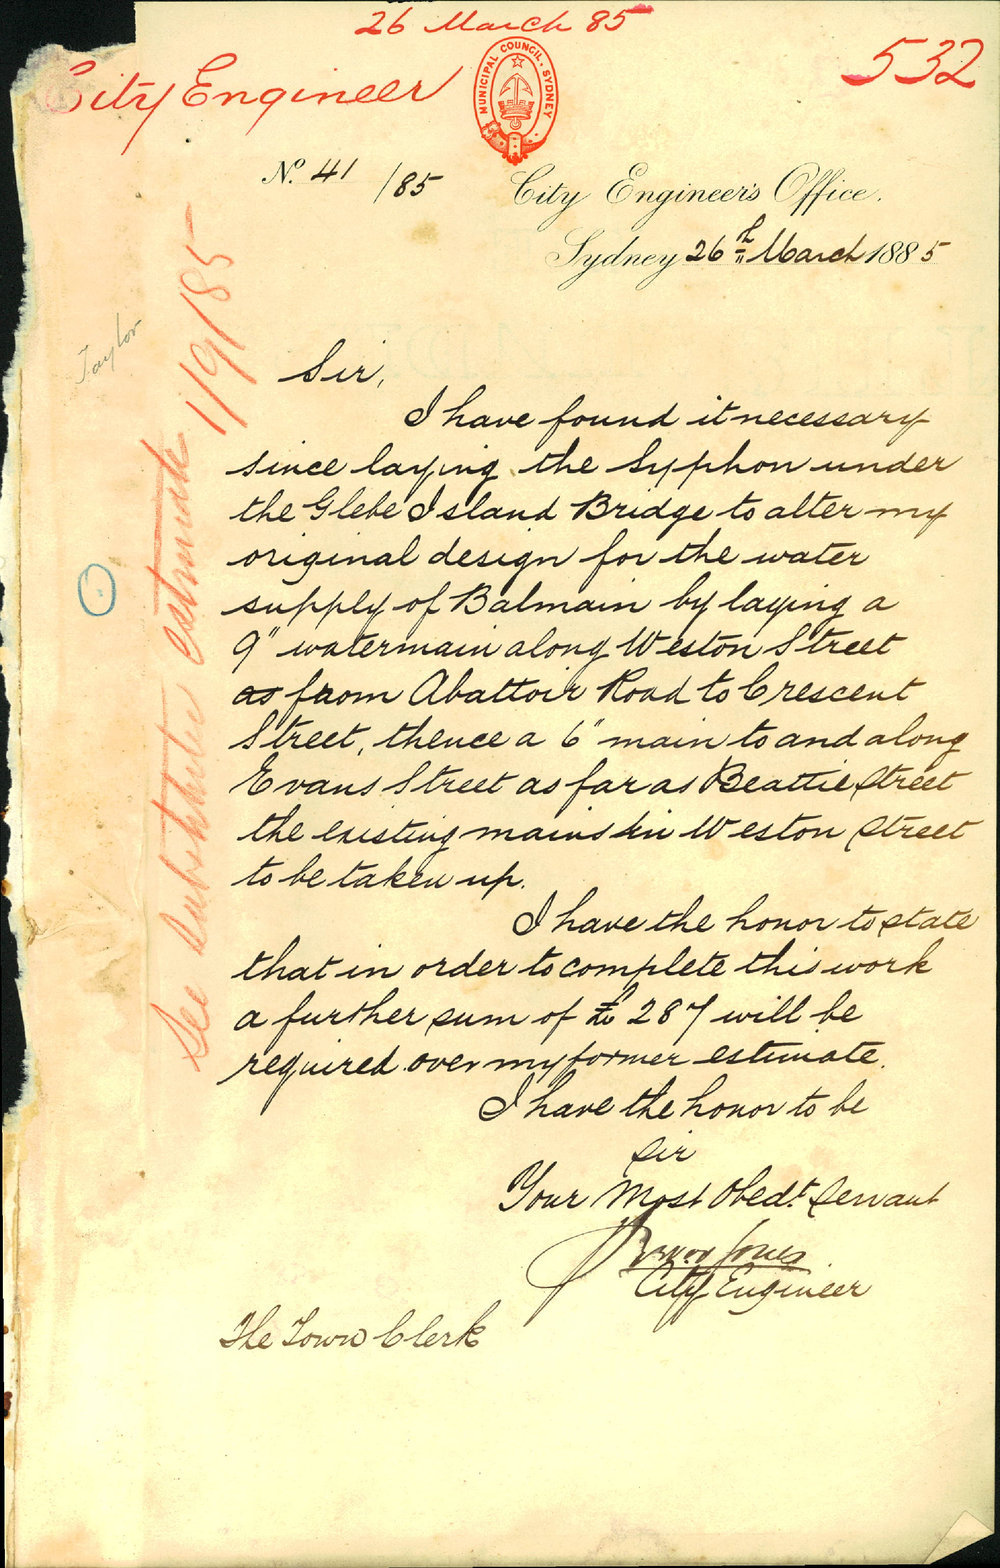 26 March 85
City Engineer
532
MUNICIPAL COUNCIL, SYDNEY
No. 41 /85
City Engineer's Office.
Sydney 26th March 1885
Taylor
See substitute estimate 1/9/85
Sir,
I have found it necessary
since laying the Syphon under
the Glebe Island Bridge to alter my
original design for the water
supply of Balmain by laying a
9" watermain along Weston Street
as from Abattoir Road to Crescent
Street, thence a 6" main to and along
Evans Street as far as Beattie Street
the existing mains in Weston Street
to be taken up.
I have the honor to state
that in order to complete this work
a further sum of £287 will be
required over my former estimate.
I have the honor to be
Sir
Your Most Obedt. Servant
Jones
City Engineer
The Town Clerk